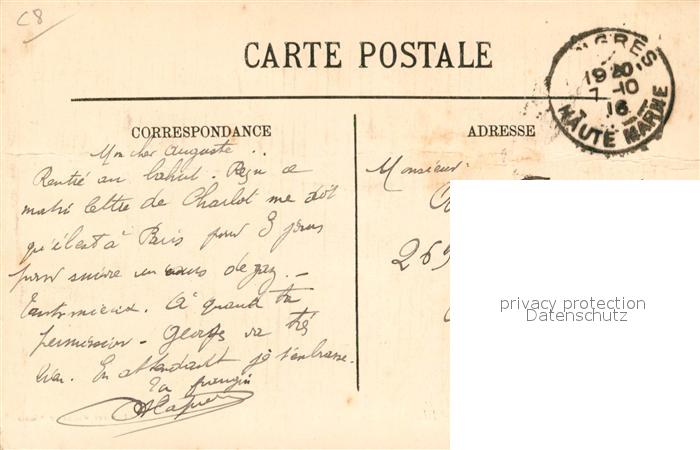 C8
CARTE POSTALE
NGRES
1920
7-10
16
HAUTE MARNE
CORRESPONDANCE
ADRESSE
Mon cher Auguste..
Rentré au bahut. Reçu ce
matin lettre de Charlot me dit
qu'il est à Paris pour 8 jours
pour suivre un cours de gaz.-
Tant mieux. A quand ta
permission - Georges va très
bien. En attendant je t'embrasse-
Ton frangin
Monsieur
269
privacy protection
Datenschutz